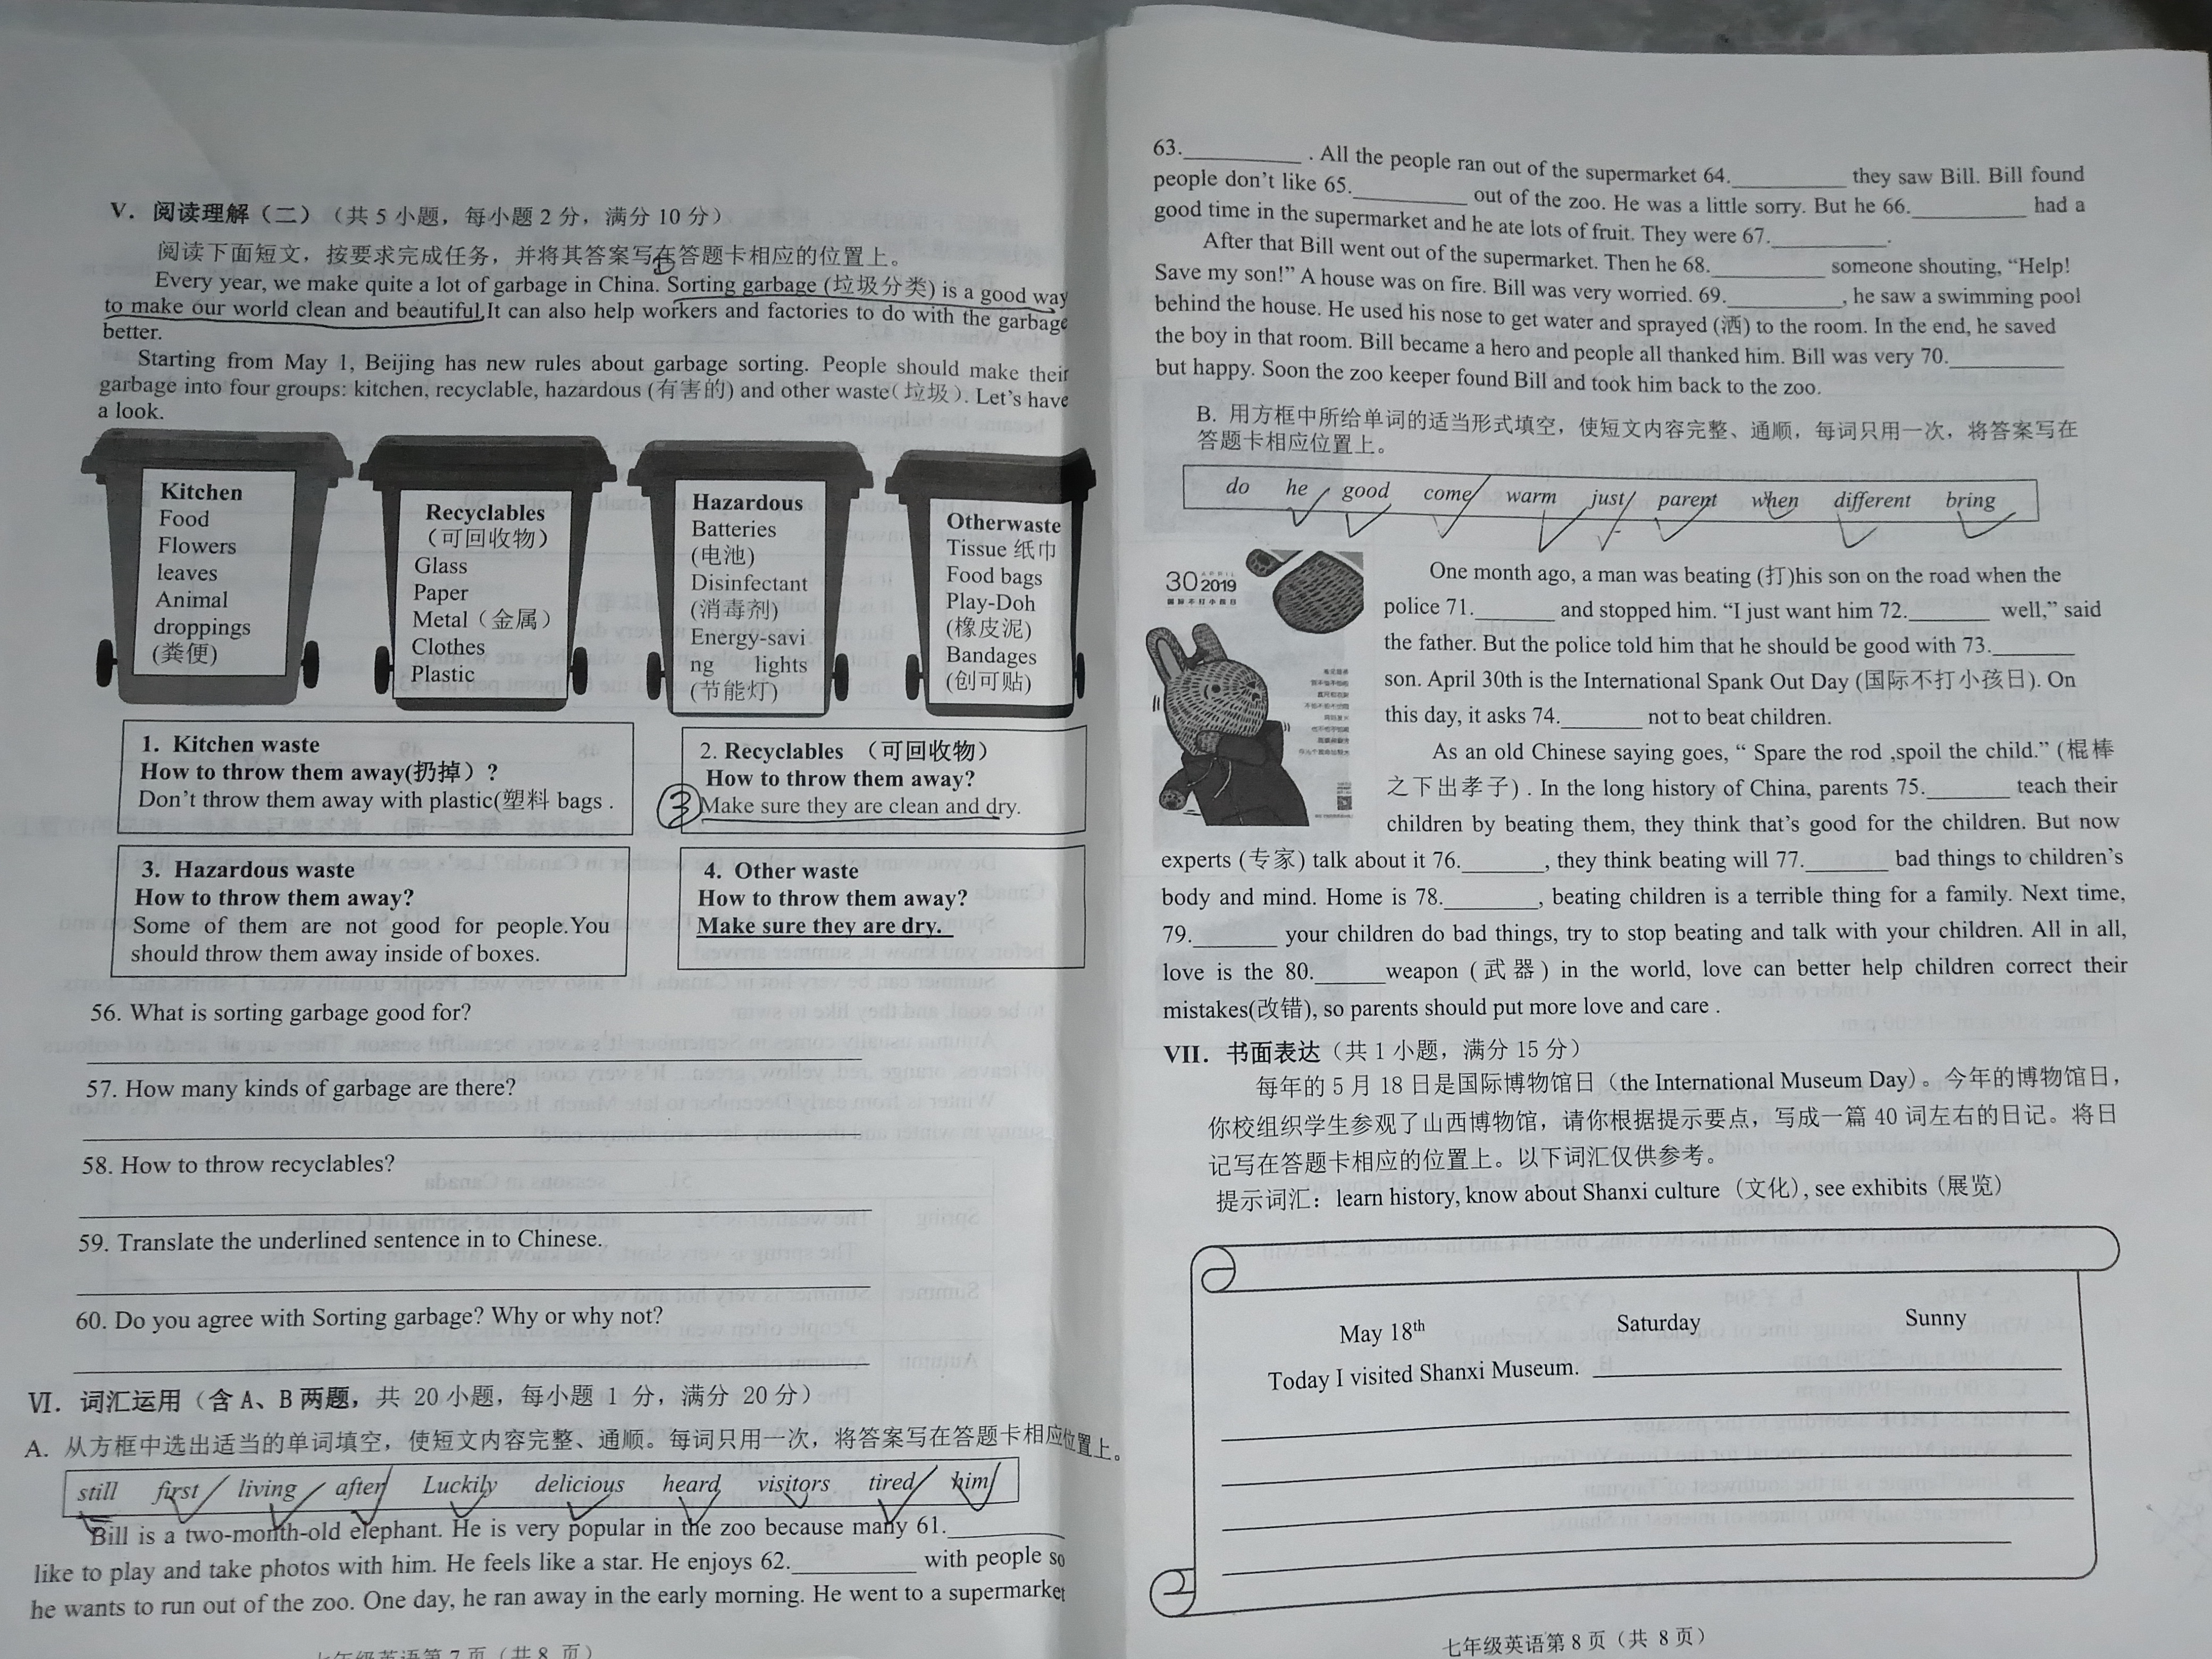 V. 阅读理解（二）（共 5 小题，每小题 2 分，满分 10 分）
阅读下面短文，按要求完成任务，并将其答案写在答题卡相应的位置上。
Every year, we make quite a lot of garbage in China. Sorting garbage (垃圾分类) is a good way
to make our world clean and beautiful.It can also help workers and factories to do with the garbage
better.
Starting from May 1, Beijing has new rules about garbage sorting. People should make their
garbage into four groups: kitchen, recyclable, hazardous (有害的) and other waste(垃圾). Let's have
a look.
Kitchen
Food
Flowers
leaves
Animal
droppings
(粪便)
Recyclables
（可回收物）
Glass
Paper
Metal（金属）
Clothes
Plastic
Hazardous
Batteries
(电池)
Disinfectant
(消毒剂)
Energy-savi
ng lights
(节能灯)
Otherwaste
Tissue 纸巾
Food bags
Play-Doh
(橡皮泥)
Bandages
(创可贴)
1. Kitchen waste
How to throw them away(扔掉）?
Don't throw them away with plastic(塑料 bags .
2. Recyclables （可回收物）
How to throw them away?
③ Make sure they are clean and dry.
3. Hazardous waste
How to throw them away?
Some of them are not good for people.You
should throw them away inside of boxes.
4. Other waste
How to throw them away?
Make sure they are dry.
56. What is sorting garbage good for?
57. How many kinds of garbage are there?
58. How to throw recyclables?
59. Translate the underlined sentence in to Chinese.
60. Do you agree with Sorting garbage? Why or why not?
VI. 词汇运用（含 A、B 两题，共 20 小题，每小题 1 分，满分 20 分）
A. 从方框中选出适当的单词填空，使短文内容完整、通顺。每词只用一次，将答案写在答题卡相应位置上。
still first living after Luckily delicious heard visitors tired him
Bill is a two-month-old elephant. He is very popular in the zoo because many 61.__________
like to play and take photos with him. He feels like a star. He enjoys 62.__________ with people so
he wants to run out of the zoo. One day, he ran away in the early morning. He went to a supermarket
七年级英语第 7 页（共 8 页）
63.__________ . All the people ran out of the supermarket 64.__________ they saw Bill. Bill found
people don't like 65.__________ out of the zoo. He was a little sorry. But he 66.__________ had a
good time in the supermarket and he ate lots of fruit. They were 67.__________.
After that Bill went out of the supermarket. Then he 68.__________ someone shouting, “Help!
Save my son!” A house was on fire. Bill was very worried. 69.__________, he saw a swimming pool
behind the house. He used his nose to get water and sprayed (洒) to the room. In the end, he saved
the boy in that room. Bill became a hero and people all thanked him. Bill was very 70.__________
but happy. Soon the zoo keeper found Bill and took him back to the zoo.
B. 用方框中所给单词的适当形式填空，使短文内容完整、通顺，每词只用一次，将答案写在
答题卡相应位置上。
do he good come warm just parent when different bring
30 APRIL 2019
国际不打小孩日
One month ago, a man was beating (打)his son on the road when the
police 71.________ and stopped him. “I just want him 72.________ well,” said
the father. But the police told him that he should be good with 73.________
son. April 30th is the International Spank Out Day (国际不打小孩日). On
this day, it asks 74.________ not to beat children.
As an old Chinese saying goes, “ Spare the rod ,spoil the child.” (棍棒
之下出孝子) . In the long history of China, parents 75.________ teach their
children by beating them, they think that's good for the children. But now
experts (专家) talk about it 76.________, they think beating will 77.________ bad things to children's
body and mind. Home is 78.________, beating children is a terrible thing for a family. Next time,
79.________ your children do bad things, try to stop beating and talk with your children. All in all,
love is the 80.______weapon (武器) in the world, love can better help children correct their
mistakes(改错), so parents should put more love and care .
VII. 书面表达（共 1 小题，满分 15 分）
每年的 5 月 18 日是国际博物馆日（the International Museum Day）。今年的博物馆日，
你校组织学生参观了山西博物馆，请你根据提示要点，写成一篇 40 词左右的日记。将日
记写在答题卡相应的位置上。以下词汇仅供参考。
提示词汇：learn history, know about Shanxi culture（文化）, see exhibits（展览）
May 18th Saturday Sunny
Today I visited Shanxi Museum. __________
七年级英语第 8 页（共 8 页）